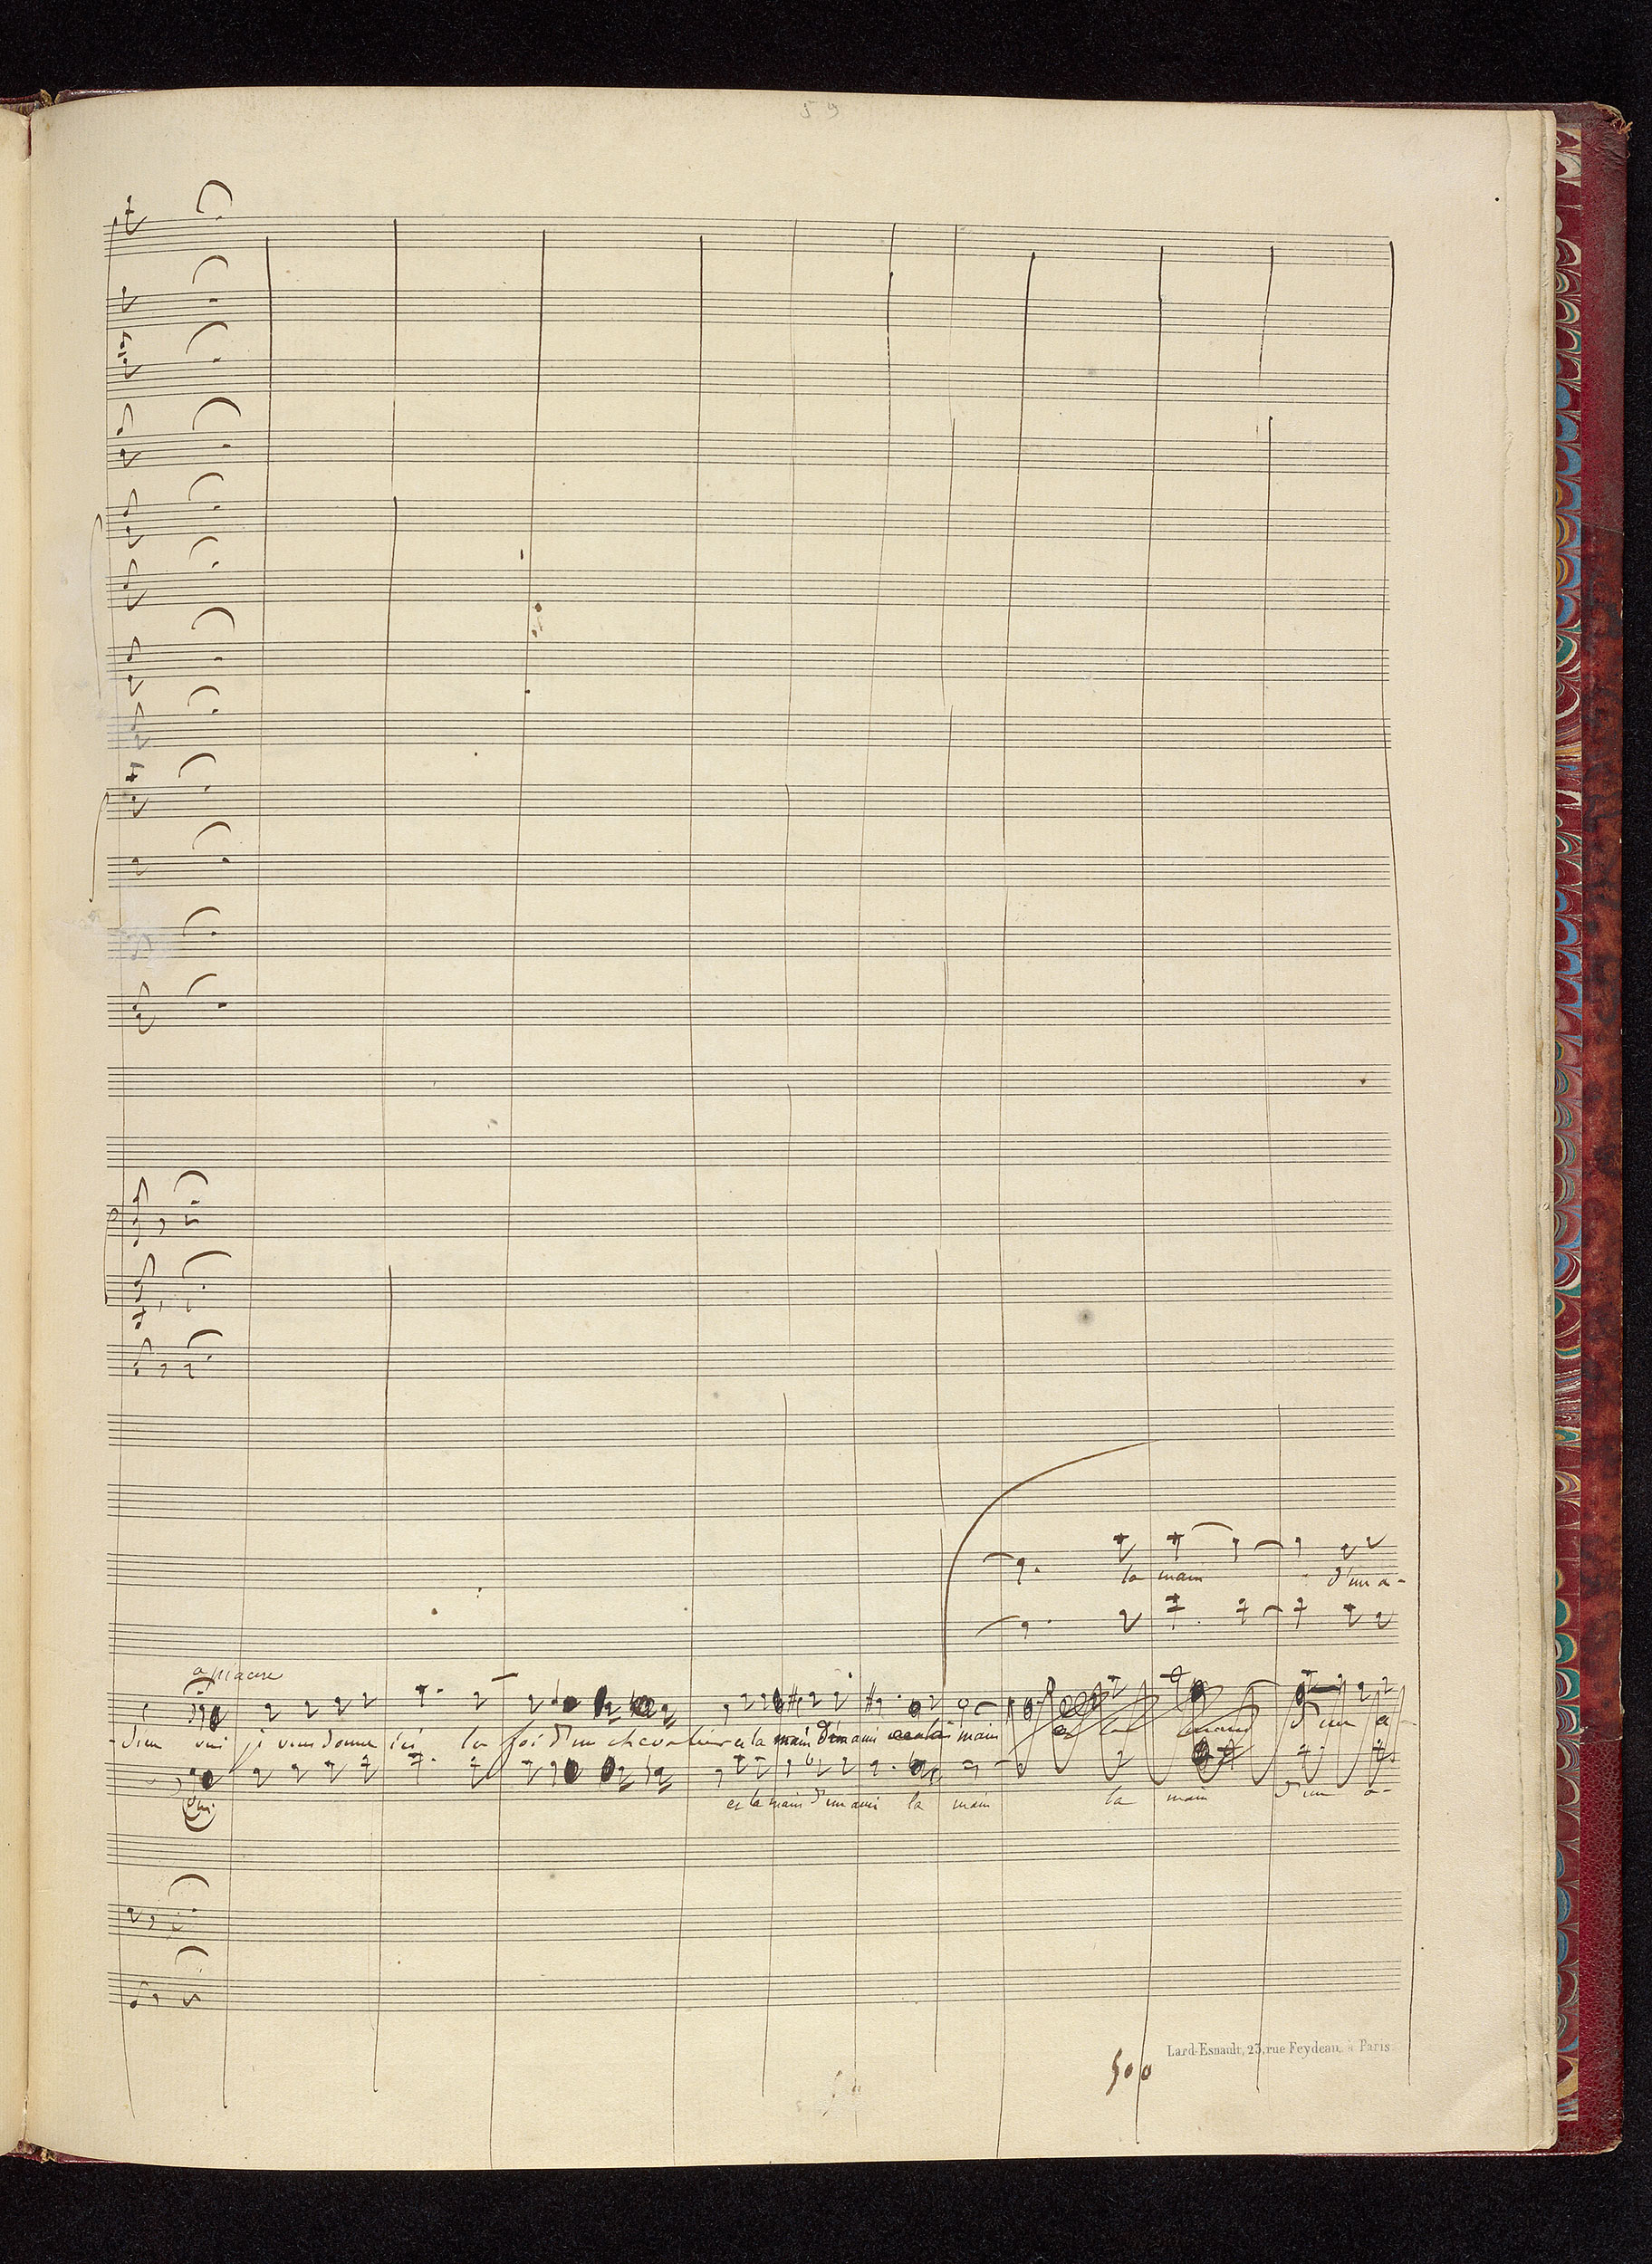 59
solo
la main d'un a-
a piacere
-dieu oui je vous donne ici la foi d'un chevalier et la main d'un ami main
et la main d'un a-
oui et la main d'un ami la main la main d'un a-
Lard-Esnault, 23, rue Feydeau, à Paris
500